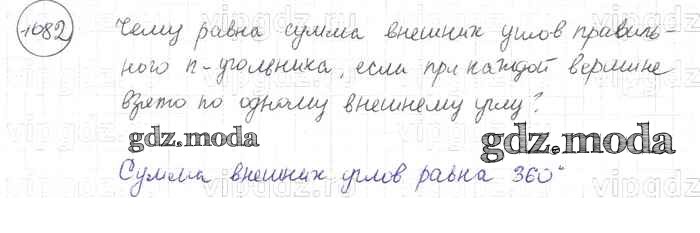 1082
Чему равна сумма внешних углов правиль-
ного n-угольника, если при каждой вершине
взято по одному внешнему углу?
gdz.moda
gdz.moda
Сумма внешних углов равна 360°